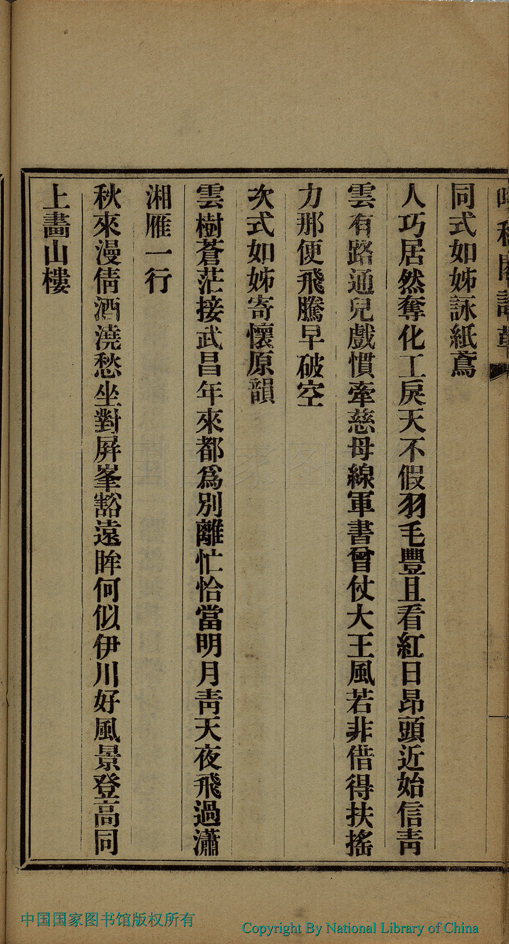 同式如姊詠紙鳶
人巧居然奪化工戾天不假羽毛豐且看紅日昂頭近始信靑
雲有路通兒戲慣牽慈母線軍書曾仗大王風若非借得扶搖
力那便飛騰早破空
次式如姊寄懷原韻
雲樹蒼茫接武昌年來都爲別離忙恰當明月靑天夜飛過瀟
湘雁一行
秋來漫倩酒澆愁坐對屛峯豁遠眸何似伊川好風景登高同
上畵山樓
中国国家图书馆版权所有
Copyright By National Library of China